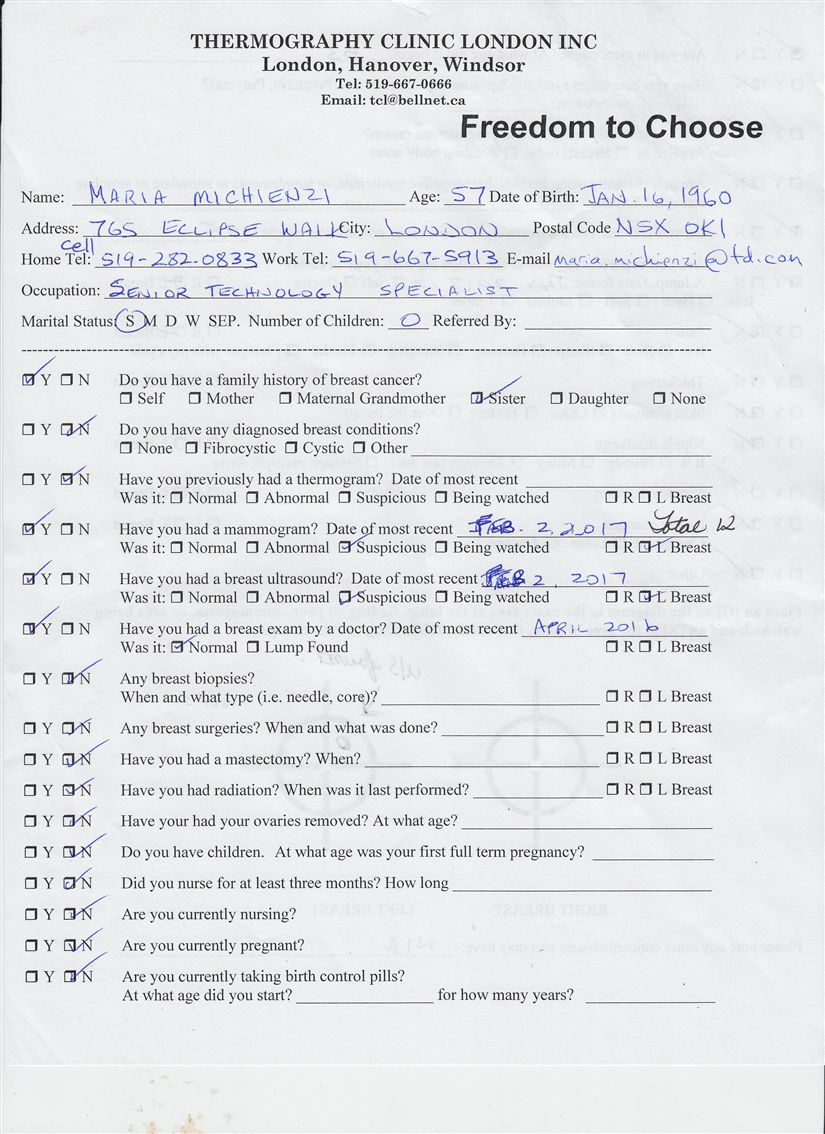 THERMOGRAPHY CLINIC LONDON INC
London, Hanover, Windsor
Tel: 519-667-0666
Email: tcl@bellnet.ca
Freedom to Choose
Name: MARIA MICHIENZI Age: 57 Date of Birth: JAN. 16, 1960
Address: 765 ECLIPSE WALK City: LONDON Postal Code N5X 0K1
cell
Home Tel: 519-282-0833 Work Tel: 519-667-5913 E-mail maria.michienzi@td.com
Occupation: SENIOR TECHNOLOGY SPECIALIST
Marital Status: S M D W SEP. Number of Children: 0 Referred By:
☑ Y ☐ N Do you have a family history of breast cancer?
☐ Self ☐ Mother ☐ Maternal Grandmother ☑ Sister ☐ Daughter ☐ None
☐ Y ☑ N Do you have any diagnosed breast conditions?
☐ None ☐ Fibrocystic ☐ Cystic ☐ Other
☐ Y ☑ N Have you previously had a thermogram? Date of most recent
Was it: ☐ Normal ☐ Abnormal ☐ Suspicious ☐ Being watched ☐ R ☐ L Breast
☑ Y ☐ N Have you had a mammogram? Date of most recent FEB. 2, 2017 Total 12
Was it: ☐ Normal ☐ Abnormal ☑ Suspicious ☐ Being watched ☐ R ☑ L Breast
☑ Y ☐ N Have you had a breast ultrasound? Date of most recent FEB 2, 2017
Was it: ☐ Normal ☐ Abnormal ☑ Suspicious ☐ Being watched ☐ R ☑ L Breast
☑ Y ☐ N Have you had a breast exam by a doctor? Date of most recent APRIL 2016
Was it: ☑ Normal ☐ Lump Found ☐ R ☐ L Breast
☐ Y ☑ N Any breast biopsies?
When and what type (i.e. needle, core)? ☐ R ☐ L Breast
☐ Y ☑ N Any breast surgeries? When and what was done? ☐ R ☐ L Breast
☐ Y ☑ N Have you had a mastectomy? When? ☐ R ☐ L Breast
☐ Y ☑ N Have you had radiation? When was it last performed? ☐ R ☐ L Breast
☐ Y ☑ N Have your had your ovaries removed? At what age?
☐ Y ☑ N Do you have children. At what age was your first full term pregnancy?
☐ Y ☑ N Did you nurse for at least three months? How long
☐ Y ☑ N Are you currently nursing?
☐ Y ☑ N Are you currently pregnant?
☐ Y ☑ N Are you currently taking birth control pills?
At what age did you start? for how many years?